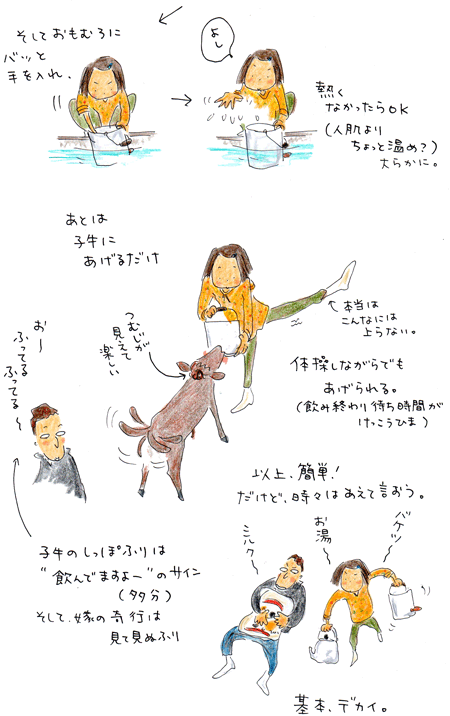 そしておもむろに
バッと
手を入れ、
よし
熱く
なかったらOK
(人肌より
ちょっと温め?)
大らかに。
あとは
子牛に
あげるだけ
本当は
こんなには
上らない。
つむじが
見えて
楽しい
体操しながらでも
あげられる。
(飲み終わり待ち時間が
けっこうひま)
お〜
ふってる
ふってる〜
子牛のしっぽふりは
“飲んでますよー”のサイン
(多分)
そして、嫁の奇行は
見て見ぬふり
以上、簡単!
だけど、時々はあえて言おう。
バケツ
お湯
ミルク
基本、デカイ。